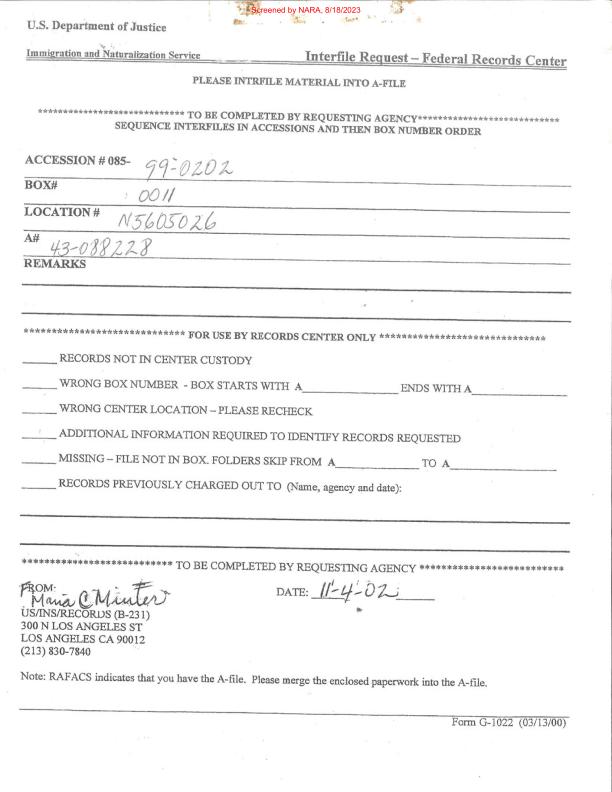 Screened by NARA, 8/18/2023
U.S. Department of Justice
Immigration and Naturalization Service Interfile Request – Federal Records Center
PLEASE INTRFILE MATERIAL INTO A-FILE
**************************** TO BE COMPLETED BY REQUESTING AGENCY****************************
SEQUENCE INTERFILES IN ACCESSIONS AND THEN BOX NUMBER ORDER
ACCESSION # 085- 99-0202
BOX# 0011
LOCATION # N5605026
A# 43-088228
REMARKS
******************************* FOR USE BY RECORDS CENTER ONLY ********************************
______ RECORDS NOT IN CENTER CUSTODY
______ WRONG BOX NUMBER - BOX STARTS WITH A________________ ENDS WITH A________________
______ WRONG CENTER LOCATION – PLEASE RECHECK
______ ADDITIONAL INFORMATION REQUIRED TO IDENTIFY RECORDS REQUESTED
______ MISSING – FILE NOT IN BOX. FOLDERS SKIP FROM A______________ TO A__________________
______ RECORDS PREVIOUSLY CHARGED OUT TO (Name, agency and date):
***************************** TO BE COMPLETED BY REQUESTING AGENCY ****************************
FROM: DATE: 11-4-02
Maria C Minter
US/INS/RECORDS (B-231)
300 N LOS ANGELES ST
LOS ANGELES CA 90012
(213) 830-7840
Note: RAFACS indicates that you have the A-file. Please merge the enclosed paperwork into the A-file.
Form G-1022 (03/13/00)